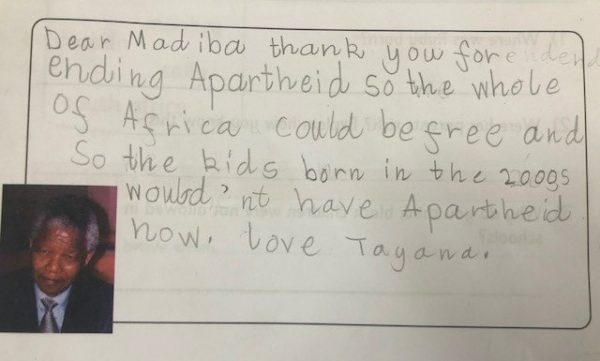 Dear Madiba thank you for endend
ending Apartheid so the whole
of Africa could be free and
So the kids born in the 2000s
would'nt have Apartheid
now. love Tayana.